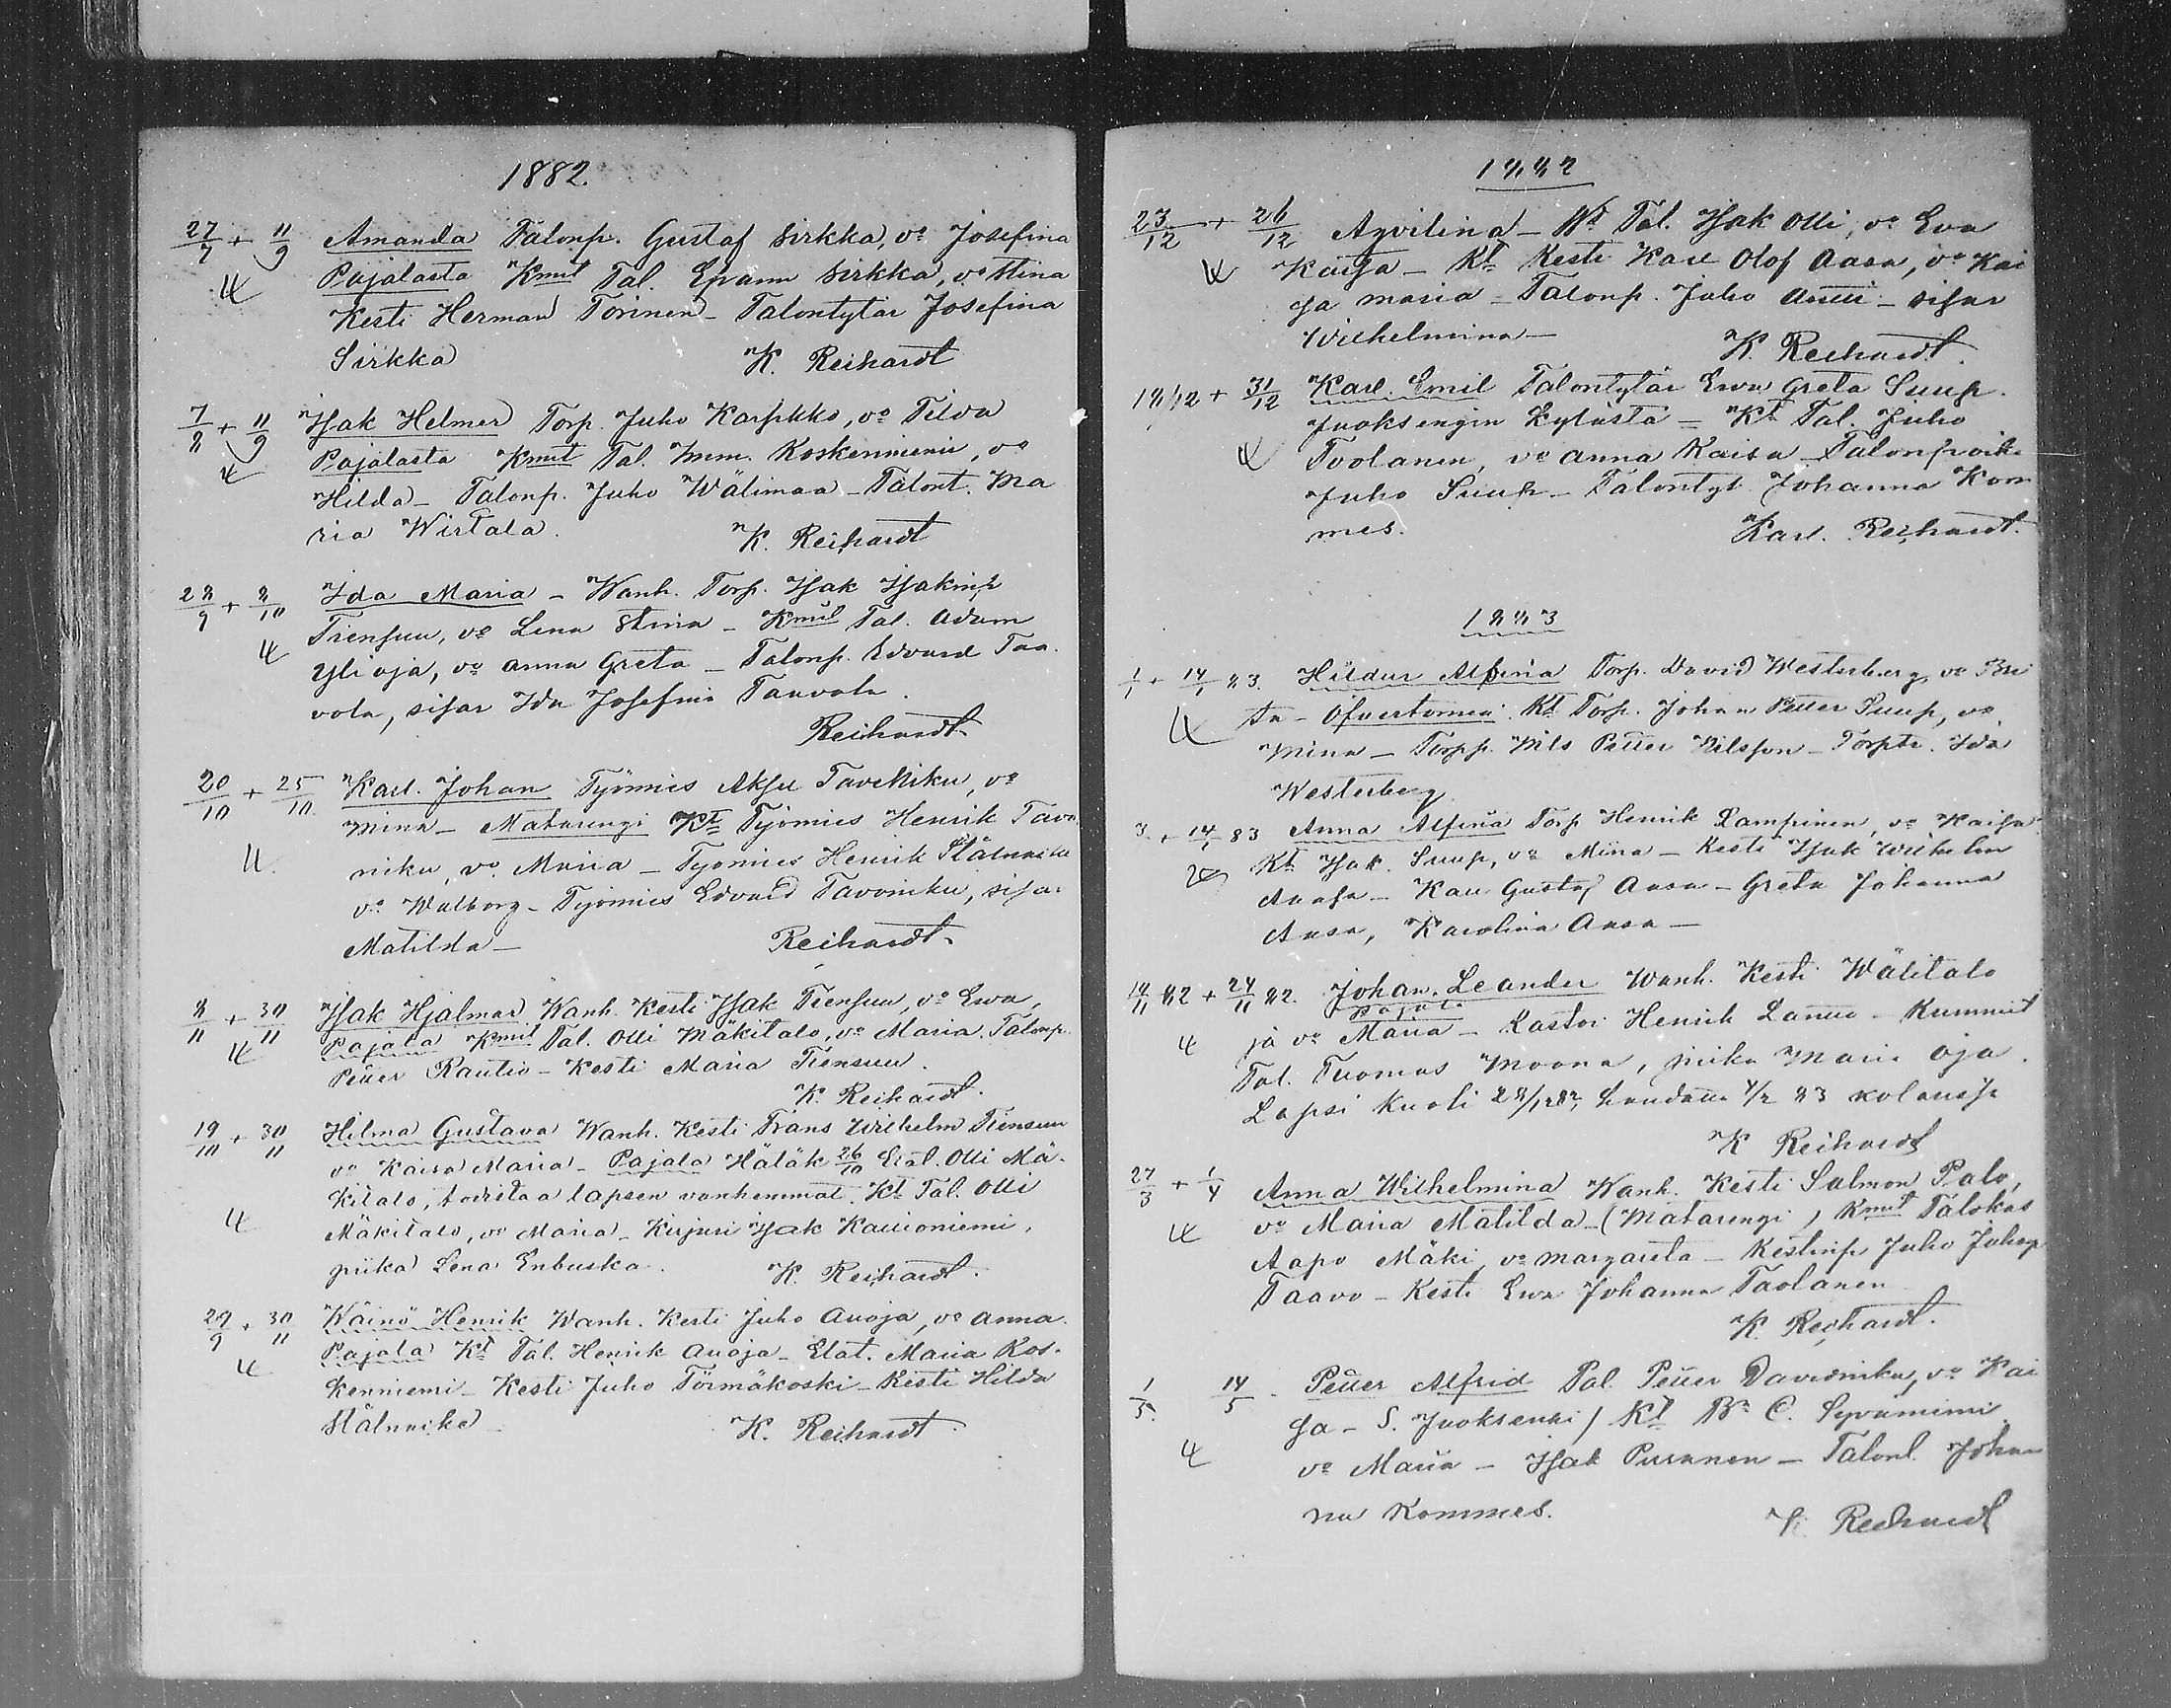 1882.
27/7 + 11/9 Amanda Talonp. Gustaf Sirkka, vo Josefina
Pajalasta Kmit Tal. Epram Sirkka, vo Stina
Kesti Herman Törinen - Talontytär Josefina
Sirkka K. Reihardt
7/8 + 11/9 Isak Helmer Torp. Juho Karpikko, vo Tilda
Pajalasta Kmit Tal. Imm. Koskenniemi, vo
Hilda - Talonp. Juho Wälimaa - Talont. Ma
ria Wirtala. K. Reihardt
28/9 + 8/10 Ida Maria - Wanh. Torp. Isak Isakinp
Tiensuu, vo Lena Stina - Kmit Tal. Adam
Yli oja, vo Anna Greta - Talonp. Edvard Taa
vola, sisar Ida Josefina Taavola.
Reihardt
20/10 + 25/10 Karl. Johan Työmies Aksel Tavoniku, vo
Mina - Matarengi Kt Työmies Henrik Tavo
niku, vo Maria - Työmies Henrik Stålnacke
vo Walborg - Työmies Edvard Tavoniku, sisar
Matilda - Reihardt
8/11 + 30/11 Isak Hjalmar Wanh. Kesti Isak Tiensuu, vo Ewa,
Pajala Kmit Tal. Olli Mäkitalo, vo Maria. Talonp.
Petter Rautio - Kesti Maria Tiensuu.
K. Reihardt.
19/10 + 30/11 Hilma Gustava Wanh. Kesti Frans Wilhelm Tiensuu
vo Kaisa Maria - Pajala Hätäk 26/10 Olli Mä-
kitalo, todistaa lapsen vanhemmat. Kt Tal. Olli
Mäkitalo, vo Maria - Kirjuri Isak Kauioniemi,
piika Lena Enbuska. K. Reihardt.
29/9 + 30/11 Wäinö Henrik Wanh. Kesti Juho Auoja, vo Anna.
Pajala Kt Tal. Henrik Auoja - Elat. Maria Kos-
kenniemi - Kesti Juho Törmäkoski - Kesti Hilda
Stålnacke - K. Reihardt.
1882
23/12 + 26/12 Aqvilina - Wt Tal. Isak Olli, vo Eva
Kaisa - Kt Kesti Karl Olof Aasa, vo Kai
sa Maria - Talonp. Juho - sisar
Wilhelmina -
K. Reihardt.
18/12 + 31/12 Karl. Emil Talontytär Ewa Greta Suup.
Juoksengin kylästä - Kt Tal. Juho
Toolanen, vo Anna Kaisa - Talonpoik.
Juho Suup - Talontyt. Johanna Kom
mes. Karl. Reihardt.
1883
1/1 + 14/1 83. Hildur Alfina Torp. David Westerberg, vo Bri
ta - Öfvertornea Kt Torp. Johan Petter Suup, vo
Mina - Torpp. Nils Petter Nilsson - Torptr. Ida
Westerberg
3 + 14/1 83 Anna Alfina Torp Henrik Lampinen, vo Kaisa
Kt Isak Suup, vo Miina - Kesti Isak Wilhelm
Aasa - Karl Gustaf Aasa - Greta Johanna
Aasa, Karolina Aasa -
14/11 82 + 24/11 82. Johan. Leander Wanh. Kesti Wälitalo
Pajala
ja vo Maria - Henrik - Kummit
Tal. Tuomas Moona, piika Maria Oja.
Lapsi kuoli 28/12 82, haudattu 4/2 83
K Reihardt
27/3 + 1/4 Anna Wilhelmina Wanh. Kesti Salmon Palo,
vo Maria Matilda - (Matarengi) Kmit Talokas
Aapo Mäki, vo Margareta - Kestinp Juho Juhop
Taavo - Kesti Ewa Johanna Taolanen
K. Reihardt.
1/5. 14/5. Petter Alfrid Tal. Petter Davidniku, vo Kai
sa - S. Juoksenki / Kt C. Syväniemi
vo Maria - Isak Puranen - Talont. Johan
na Kommes.
K. Reihardt